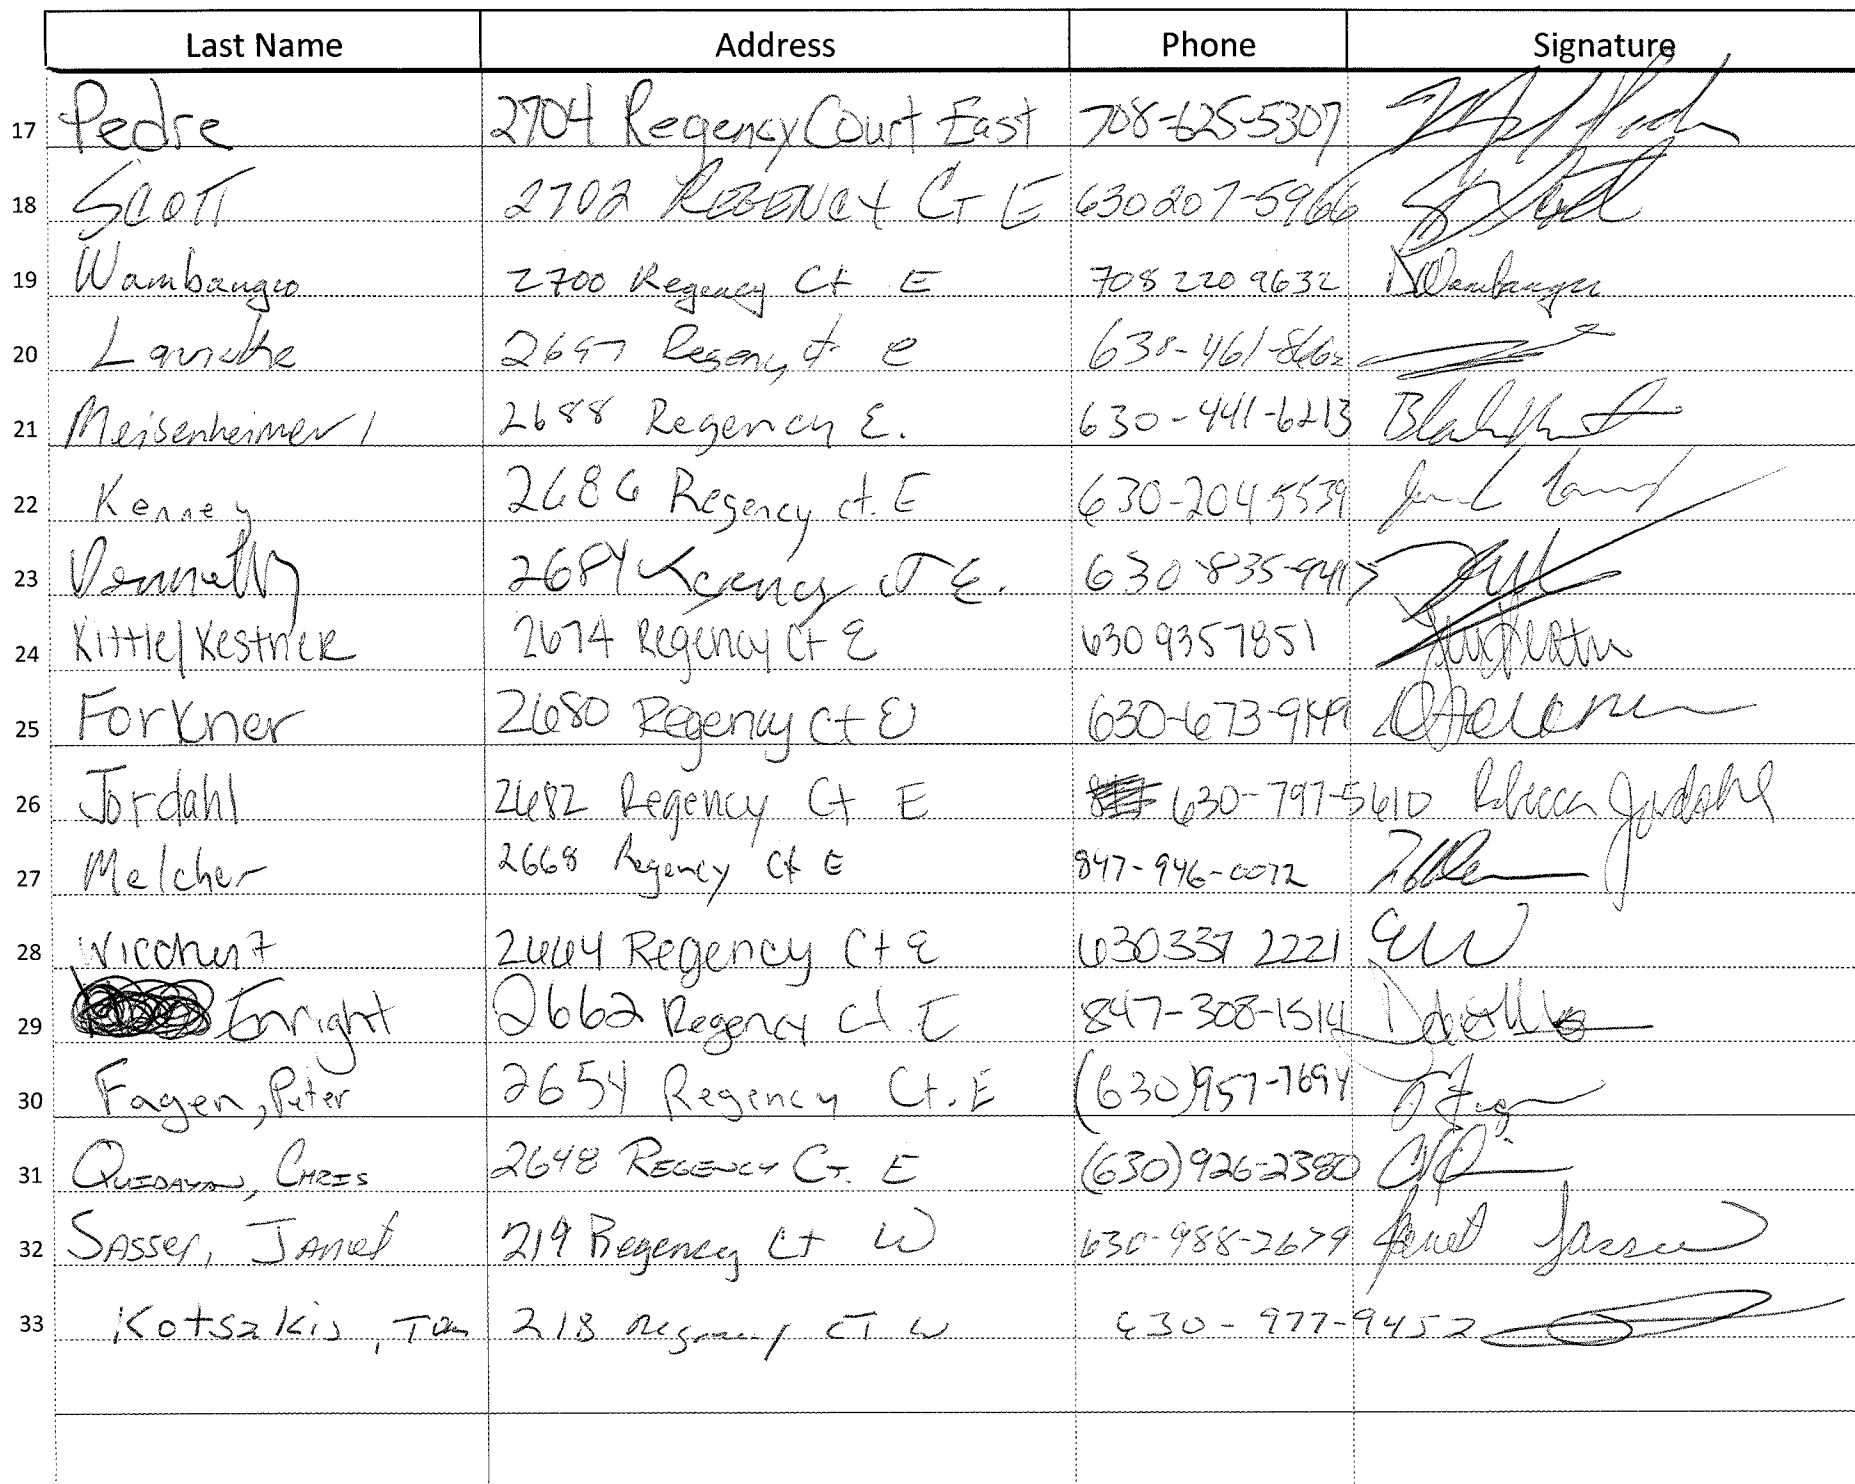 Last Name Address Phone Signature
17 Pedre 2704 Regency Court East 708-625-5307
18 SCOTT 2702 REGENCY CT E 630 207-5966
19 Wambangco 2700 Regency Ct E 708 220 9632
20 2697 Regency ct e
21 Meisenheimer 2688 Regency E. 630-441-6213
22 Kenney 2686 Regency ct. E 630-204 5539
23 2684 Regency CT E.
24 Kittle/Kestner 2674 Regency Ct E 630 935 7851
25 Forkner 2680 Regency Ct E
26 Jordahl 2682 Regency Ct E 630-797-5610 Rebecca Jordahl
27 Melcher 2668 Regency Ct E 847-946-0072
28 2664 Regency Ct E 630 337 2221 EW
29 Enright 2662 Regency Ct. E
30 Fagen, Peter 2654 Regency Ct. E (630)957-7694
31 CHRIS 2648 REGENCY CT. E (630)926-2380
32 SASSER, JANET 219 Regency Ct W 630-988-2679 Janet Sasser
33 Kotsakis, Tom 218 Regency CT W 630-977-9452